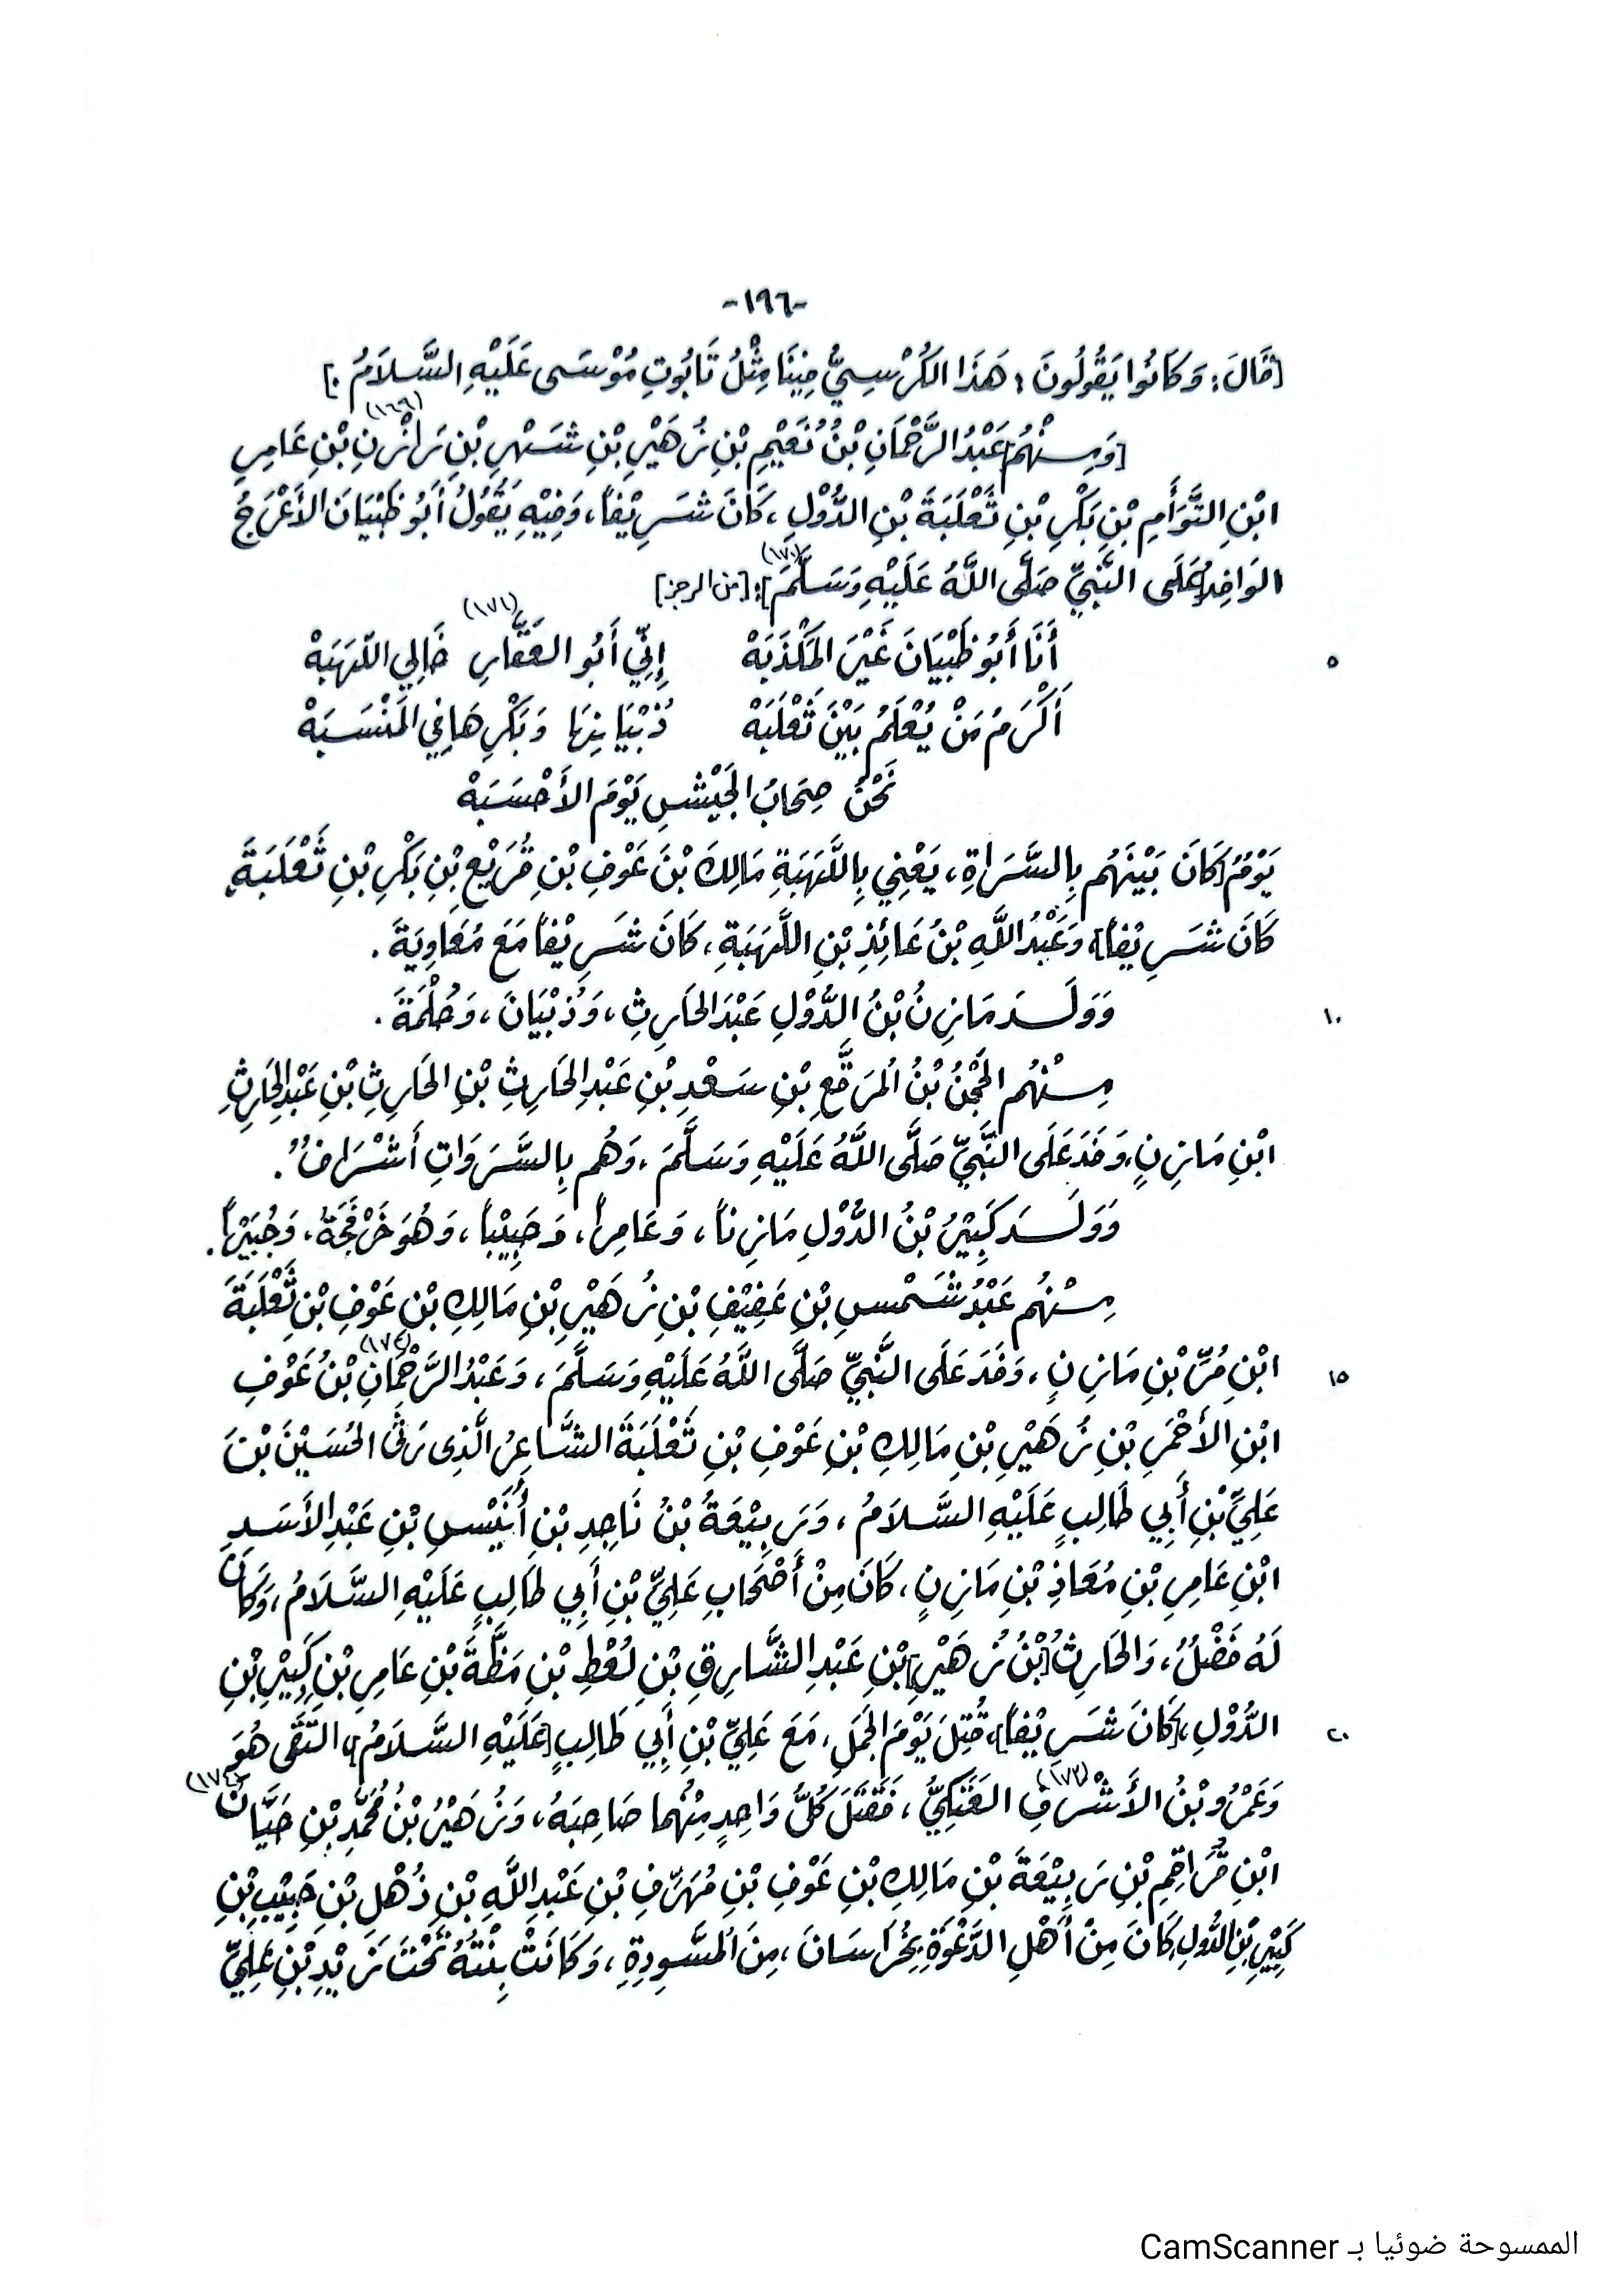 -١٩٦-
[قَالَ: وَكَانُوا يَقُولُونَ: هَذَا الكُرْسِيُّ فِيْنَا مِثْلُ تَابُوتِ مُوْسَى عَلَيْهِ السَّلاَمُ.]
[وَمِنْهُم] عَبْدُ الرَّحْمَانِ بْنُ نُعَيْمِ بْنِ زُهَيْرِ بْنِ شَهْرِ بْنِ رَازِنِ (١٦٩) بْنِ عَامِرِ
ابْنِ التَّوَأَمِ بْنِ بَكْرِ بْنِ ثَعْلَبَةَ بْنِ الدُّوْلِ، كَانَ شَرِيْفاً، وَفِيْهِ يَقُولُ أَبُو ظَبْيَانَ الأَعْرَجُ
الوَافِدُ [عَلَى النَّبِيِّ صَلَّى اللَّهُ عَلَيْهِ وَسَلَّمَ (١٧٠)]: [من الرجز]
أَنَا أَبُو ظَبْيَانَ غَيْرَ المَكْذَبَهْ إِنِّي أَبُو العَفَّارِ (١٧١) خَالِي اللَّهَبَهْ
٥
أَكْرَمُ مَنْ يُعْلَمُ بَيْنَ ثَعْلَبَهْ ذُبْيَانِهَا وَبَكْرِهَا فِي المَنْسَبَهْ
نَحْنُ صِحَابُ الجَيْشِ يَوْمَ الأَحْسَبَهْ
يَوْمٌ [كَانَ بَيْنَهُم بِالسَّرَاةِ، يَعْنِي بِاللَّهَبَةِ مَالِكَ بْنَ عَوْفِ بْنِ قُرَيْعِ بْنِ بَكْرِ بْنِ ثَعْلَبَةَ،
كَانَ شَرِيْفاً] وَعَبْدُ اللَّهِ بْنُ عَائِذِ بْنِ اللَّهَبَةِ، كَانَ شَرِيْفاً مَعَ مُعَاوِيَةَ.
وَوَلَدَ مَازِنُ بْنُ الدُّوْلِ عَبْدَ الحَارِثِ، وَذُبْيَانَ، وَحُلْمَةَ.
١٠
مِنْهُم الحَجْنُ بْنُ المُرَقَّعِ بْنِ سَعْدِ بْنِ عَبْدِ الحَارِثِ بْنِ الحَارِثِ بْنِ عَبْدِ الحَارِثِ
ابْنِ مَازِنٍ، وَفَدَ عَلَى النَّبِيِّ صَلَّى اللَّهُ عَلَيْهِ وَسَلَّمَ، وَهُم بِالسَّرَوَاتِ أَشْرَافٌ.
وَوَلَدَ كَبِيْرُ بْنُ الدُّوْلِ مَازِناً، وَعَامِراً، وَحَبِيْباً، وَهُوَ خَرْفَجَةُ، وَجُبَيْراً.
مِنْهُم عَبْدُ شَمْسِ بْنِ عَفِيْفِ بْنِ زُهَيْرِ بْنِ مَالِكِ بْنِ عَوْفِ بْنِ ثَعْلَبَةَ
ابْنِ مُرِّ بْنِ مَازِنٍ، وَفَدَ عَلَى النَّبِيِّ صَلَّى اللَّهُ عَلَيْهِ وَسَلَّمَ، وَعَبْدُ الرَّحْمَانِ (١٧٢) بْنُ عَوْفِ
١٥
ابْنِ الأَحْمَرِ بْنِ زُهَيْرِ بْنِ مَالِكِ بْنِ عَوْفِ بْنِ ثَعْلَبَةَ الشَّاعِرُ الَّذِى رَثَى الحُسَيْنَ بْنَ
عَلِيِّ بْنِ أَبِي طَالِبٍ عَلَيْهِ السَّلاَمُ، وَرَبِيْعَةُ بْنُ نَاجِدِ بْنِ أُنَيْسِ بْنِ عَبْدِ الأَسَدِ
ابْنِ عَامِرِ بْنِ مُعَاذِ بْنِ مَازِنٍ، كَانَ مِنْ أَصْحَابِ عَلِيِّ بْنِ أَبِي طَالِبٍ عَلَيْهِ السَّلاَمُ، وَكَانَ
لَهُ فَضْلٌ، وَالحَارِثُ [بْنُ زُهَيْرِ] بْنِ عَبْدِ الشَّارِقِ بْنِ لُعْطِ بْنِ مَظَّةَ بْنِ عَامِرِ بْنِ كَبِيْرِ بْنِ
الدُّوْلِ، [كَانَ شَرِيْفاً]، قُتِلَ يَوْمَ الجَمَلِ، مَعَ عَلِيِّ بْنِ أَبِي طَالِبٍ [عَلَيْهِ السَّلاَمُ]، التَقَى هُوَ
٢٠
وَعَمْرُو بْنُ الأَشْرَفِ (١٧٣) العَتَكِيُّ، فَقَتَلَ كُلُّ وَاحِدٍ مِنْهُما صَاحِبَهُ، وَزُهَيْرُ بْنُ مُحَمَّدِ بْنِ حَيَّانَ (١٧٤)
ابْنِ مُرَاقِمِ بْنِ رَبِيْعَةَ بْنِ مَالِكِ بْنِ عَوْفِ بْنِ مُهَرِّفِ بْنِ عَبْدِ اللَّهِ بْنِ ذُهْلِ بْنِ حَبِيْبِ بْنِ
كَبِيْرِ بْنِ الدُّولِ كَانَ مِنْ أَهْلِ الدَّعْوَةِ بِخُرَاسَانَ، مِنَ المُسَّوِدِةِ، وَكَانَتْ بِنْتُهُ تَحْتَ زَيْدِ بْنِ عَلِيِّ
الممسوحة ضوئيا بـ CamScanner